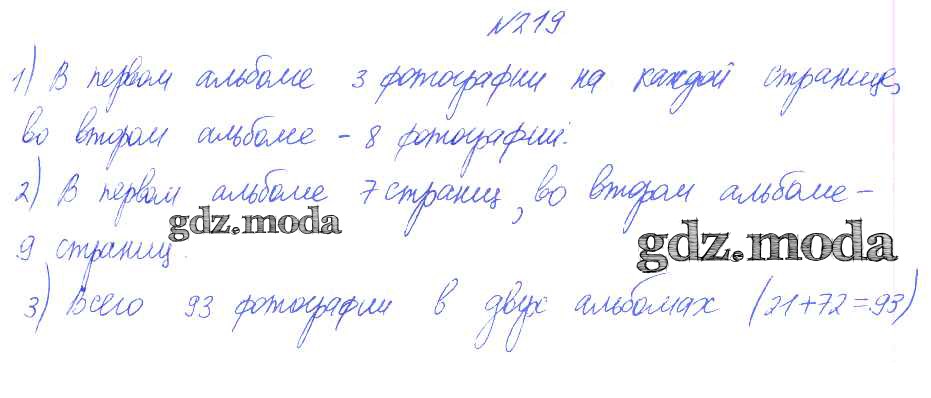 №219
1) В первом альбоме 3 фотографии на каждой странице,
во втором альбоме - 8 фотографий.
2) В первом альбоме 7 страниц, во втором альбоме -
9 страниц.
gdz.moda
gdz.moda
3) Всего 93 фотографии в двух альбомах (21+72=93)